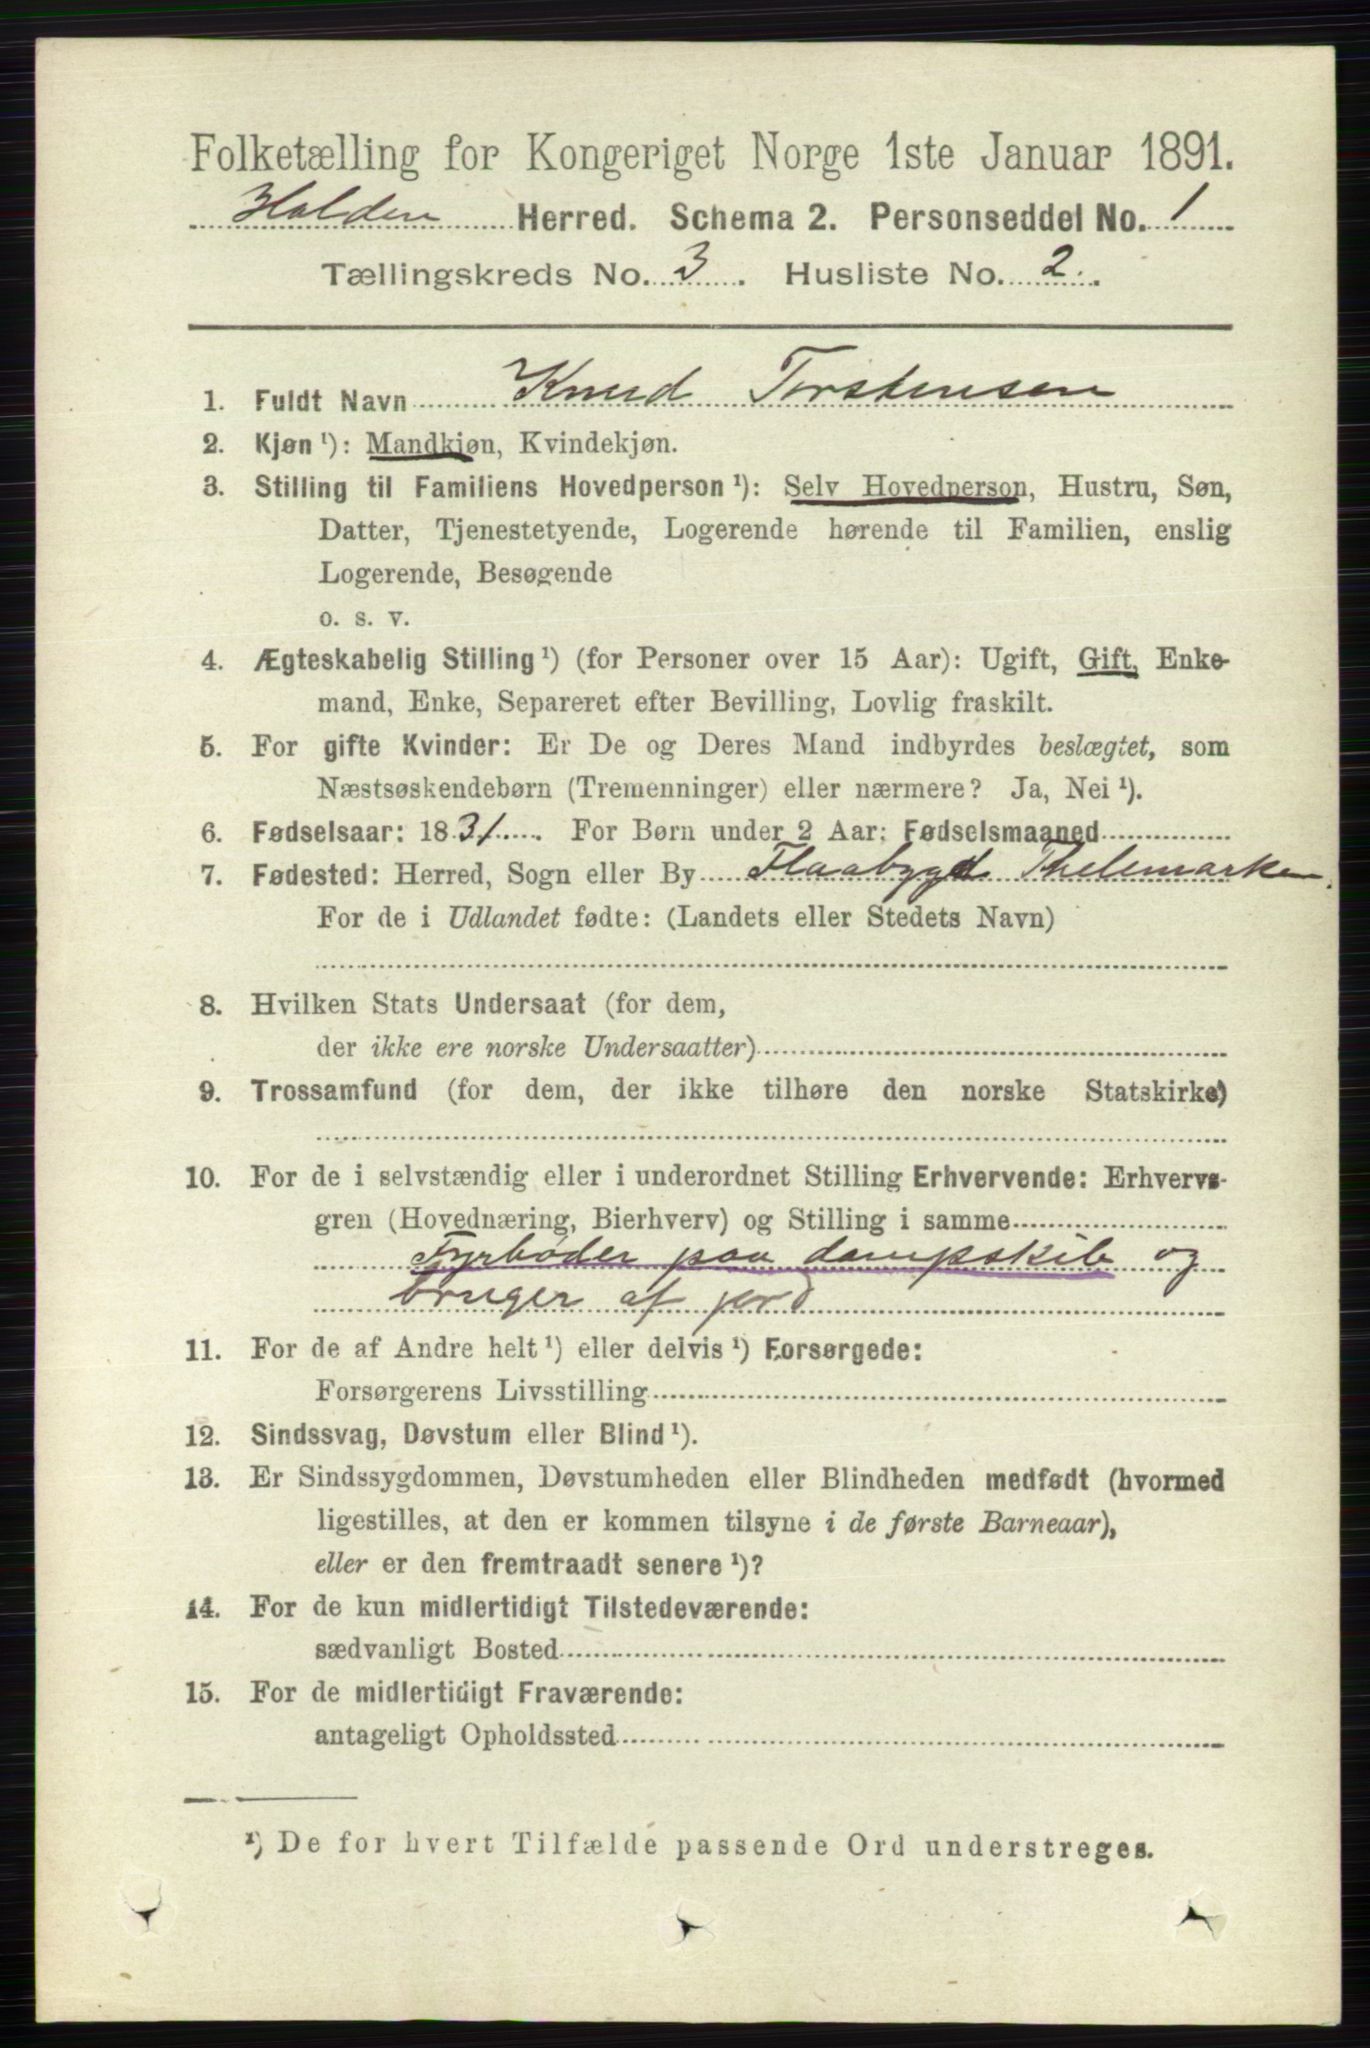 Folketælling for Kongeriget Norge 1ste Januar 1891.
Holden Herred. Schema 2. Personseddel No. 1
Tællingskreds No. 3. Husliste No. 2.
1. Fuldt Navn Knud Torstensen
2. Kjøn ¹): Mandkjøn, Kvindekjøn.
3. Stilling til Familiens Hovedperson ¹): Selv Hovedperson, Hustru, Søn,
Datter, Tjenestetyende, Logerende hørende til Familien, enslig
Logerende, Besøgende
o. s. v.
4. Ægteskabelig Stilling ¹) (for Personer over 15 Aar): Ugift, Gift, Enke-
mand, Enke, Separeret efter Bevilling, Lovlig fraskilt.
5. For gifte Kvinder: Er De og Deres Mand indbyrdes beslægtet, som
Næstsøskendebørn (Tremenninger) eller nærmere? Ja, Nei ¹).
6. Fødselsaar: 1831. For Børn under 2 Aar: Fødselsmaaned
7. Fødested: Herred, Sogn eller By Flaabygd Thelemarken.
For de i Udlandet fødte: (Landets eller Stedets Navn)
8. Hvilken Stats Undersaat (for dem,
der ikke ere norske Undersaatter)
9. Trossamfund (for dem, der ikke tilhøre den norske Statskirke)
10. For de i selvstændig eller i underordnet Stilling Erhvervende: Erhvervs-
gren (Hovednæring, Bierhverv) og Stilling i samme
Fyrbøder paa dampskib og
bruger af jord
11. For de af Andre helt ¹) eller delvis ¹) Forsørgede:
Forsørgerens Livsstilling
12. Sindssvag, Døvstum eller Blind ¹).
13. Er Sindssygdommen, Døvstumheden eller Blindheden medfødt (hvormed
ligestilles, at den er kommen tilsyne i de første Barneaar),
eller er den fremtraadt senere ¹)?
14. For de kun midlertidigt Tilstedeværende:
sædvanligt Bosted
15. For de midlertidigt Fraværende:
antageligt Opholdssted
¹) De for hvert Tilfælde passende Ord understreges.